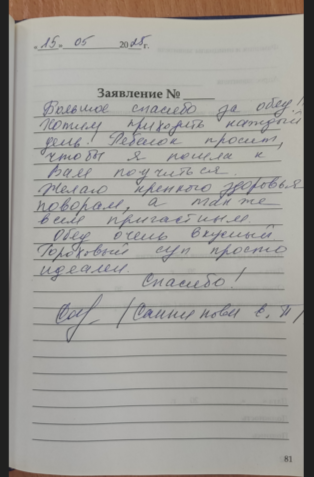 «15» 05 2025г.
Заявление №
Большое спасибо за обед!
Хотим приходить каждый
день! Ребенок просит,
чтобы я пошла к
Вам поучиться.
Желаю крепкого здоровья
поварам, а также
всем причастным
Обед очень вкусный
Гороховый суп просто
идеален
Спасибо!
81